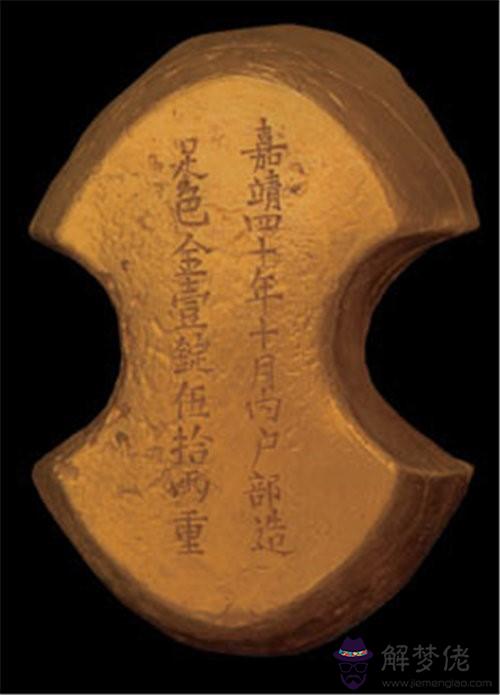 嘉靖四十年十月内户部造
足色金壹錠伍拾兩重
解梦佬
www.jiemenglao.com